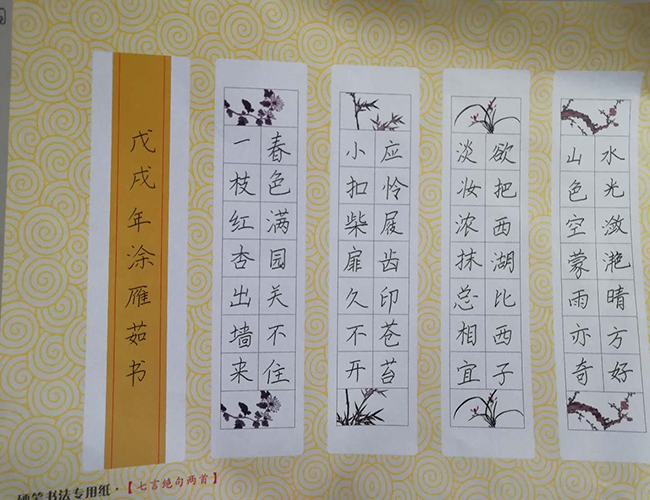 水光潋滟晴方好
山色空蒙雨亦奇
欲把西湖比西子
淡妆浓抹总相宜
应怜屐齿印苍苔
小扣柴扉久不开
春色满园关不住
一枝红杏出墙来
戊戌年涂雁茹书
硬笔书法专用纸·【七言绝句两首】